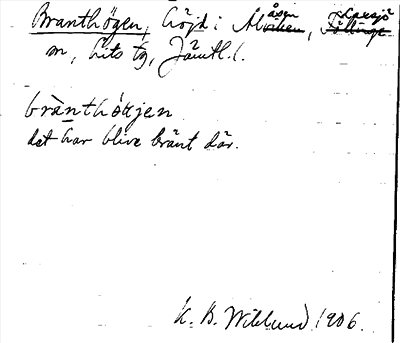 Branthögen, höjd i Alåsen, Laxsjö
sn, Lits tg, Jämtl. l.
brànthö́gjen
det har blive bränt där.
K. B. Wiklund 1906.